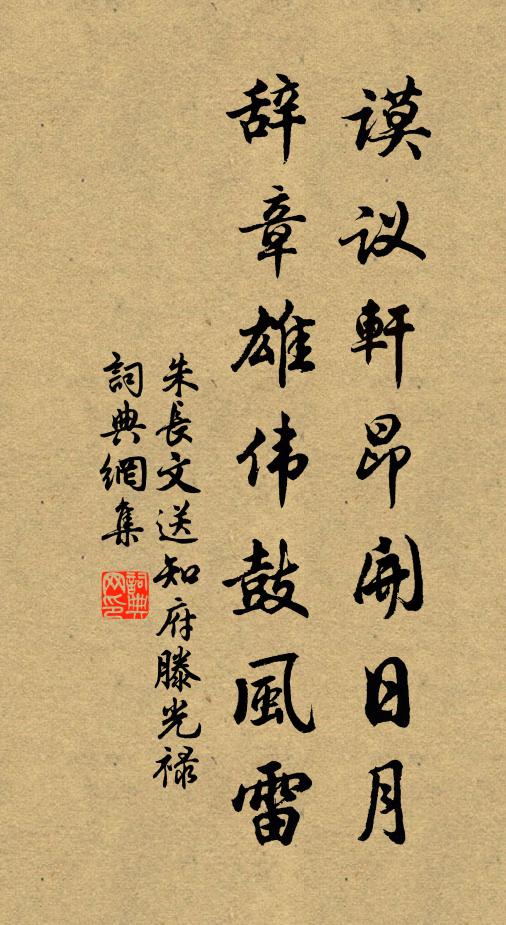 谟议軒昂開日月
辞章雄伟鼓風雷
朱長文送知府滕光禄
詞典網集
詞典网印